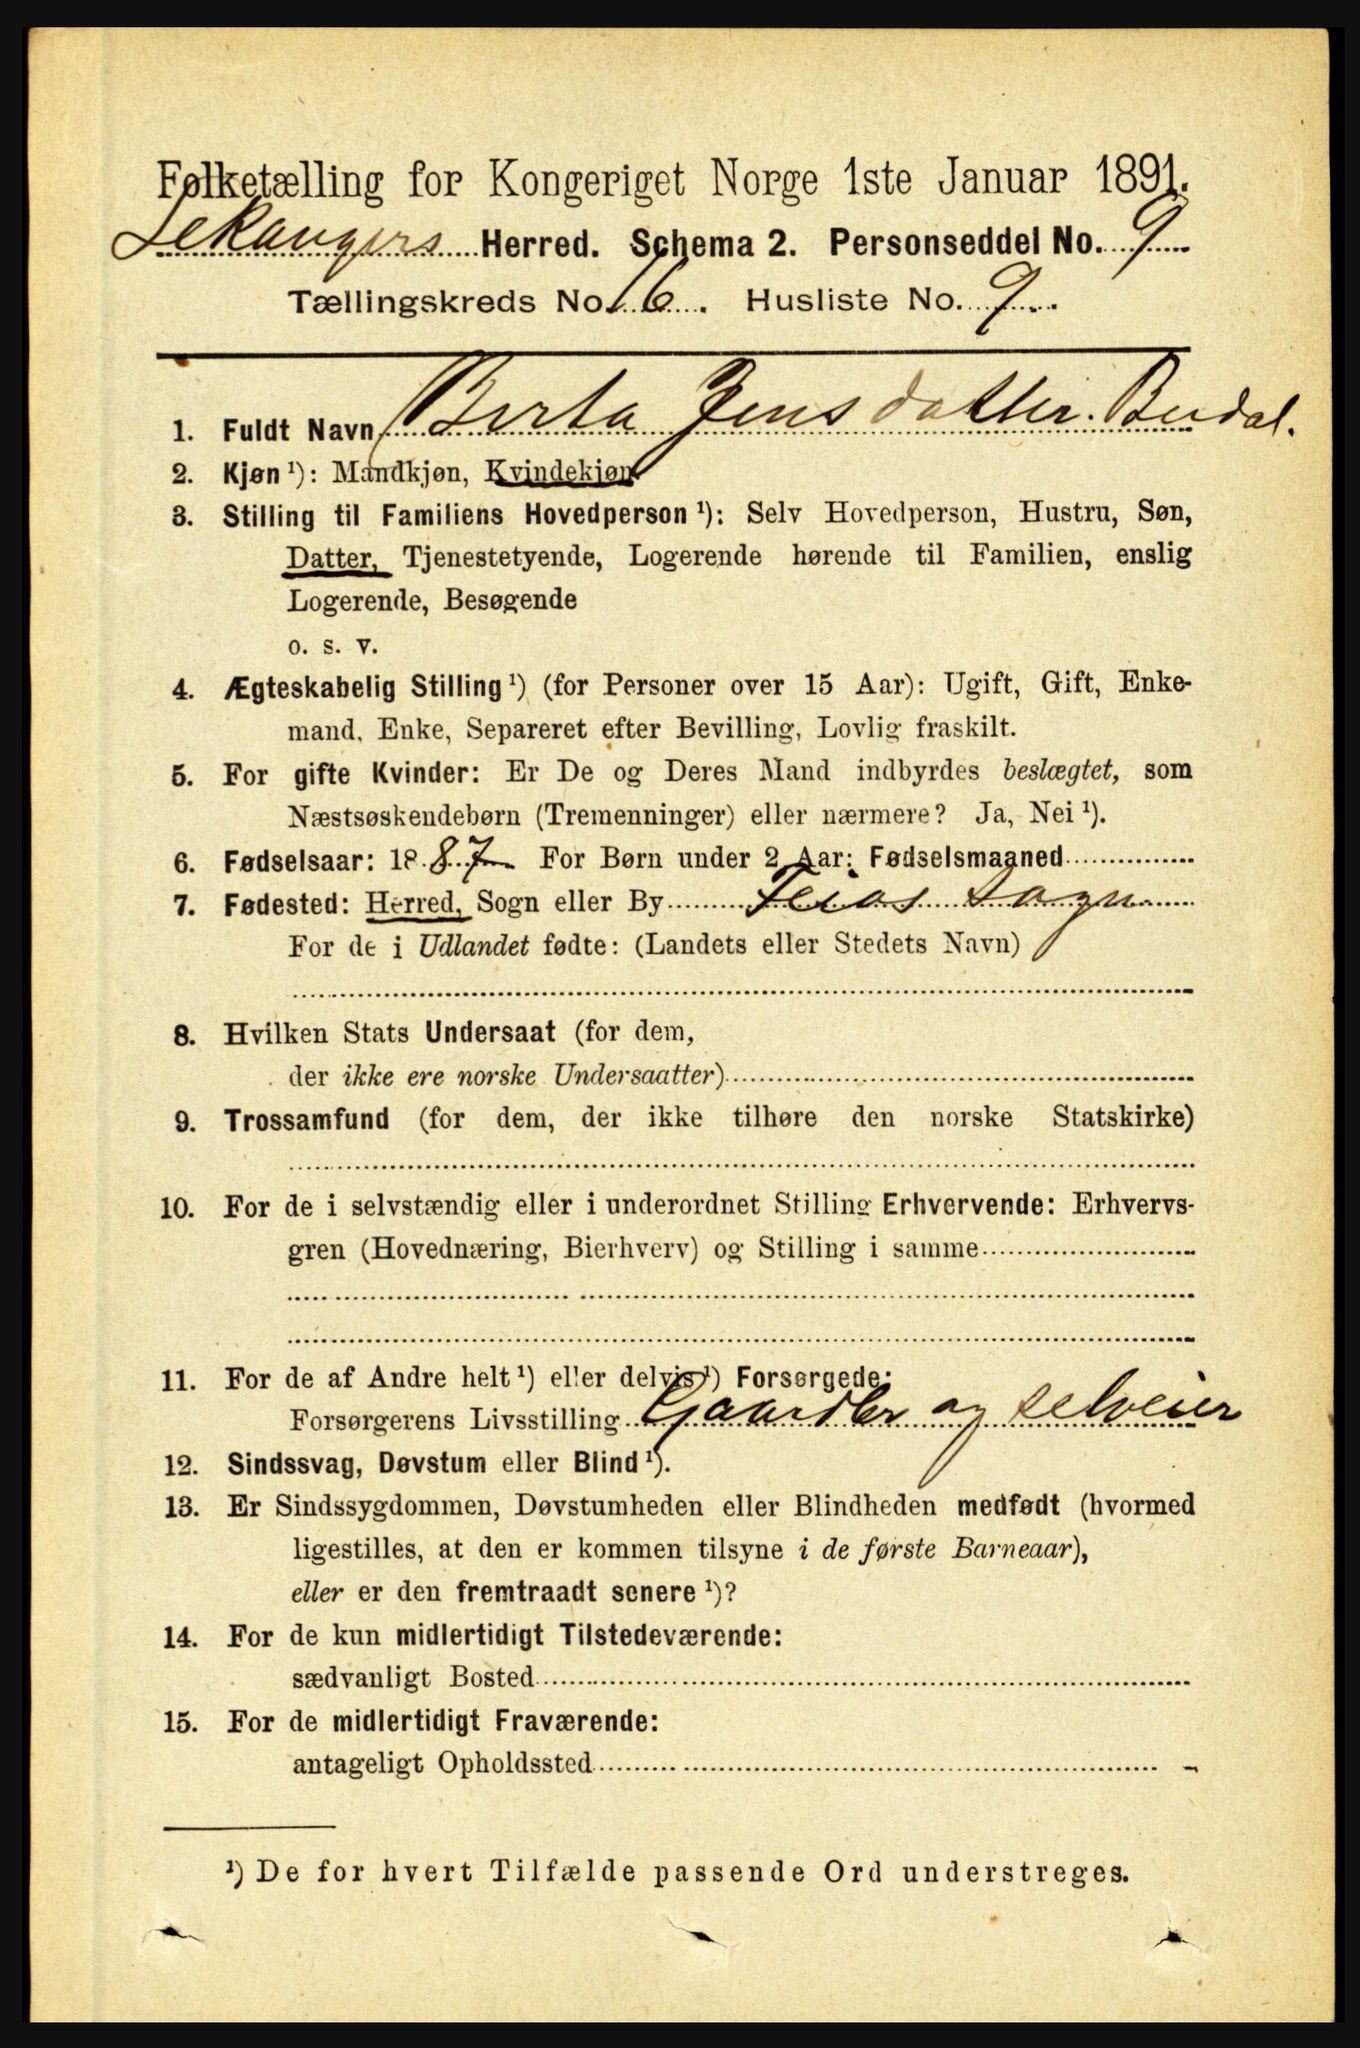 Følketælling for Kongeriget Norge 1ste Januar 1891.
Lekangers Herred. Schema 2. Personseddel No. 9
Tællingskreds No. 16. Husliste No. 9.
1. Fuldt Navn Berta Jensdatter Berdal.
2. Kjøn ¹): Mandkjøn, Kvindekjøn
3. Stilling til Familiens Hovedperson ¹): Selv Hovedperson, Hustru, Søn,
Datter, Tjenestetyende, Logerende hørende til Familien, enslig
Logerende, Besøgende
o. s. v.
4. Ægteskabelig Stilling ¹) (for Personer over 15 Aar): Ugift, Gift, Enke-
mand, Enke, Separeret efter Bevilling, Lovlig fraskilt.
5. For gifte Kvinder: Er De og Deres Mand indbyrdes beslægtet, som
Næstsøskendebørn (Tremenninger) eller nærmere? Ja, Nei ¹).
6. Fødselsaar: 1887 For Børn under 2 Aar: Fødselsmaaned
7. Fødested: Herred, Sogn eller By Feios Sogn
For de i Udlandet fødte: (Landets eller Stedets Navn)
8. Hvilken Stats Undersaat (for dem,
der ikke ere norske Undersaatter)
9. Trossamfund (for dem, der ikke tilhøre den norske Statskirke)
10. For de i selvstændig eller i underordnet Stilling Erhvervende: Erhvervs-
gren (Hovednæring, Bierhverv) og Stilling i samme
11. For de af Andre helt ¹) eller delvis ¹) Forsørgede:
Forsørgerens Livsstilling Gaardbr og selveier
12. Sindssvag, Døvstum eller Blind ¹).
13. Er Sindssygdommen, Døvstumheden eller Blindheden medfødt (hvormed
ligestilles, at den er kommen tilsyne i de første Barneaar),
eller er den fremtraadt senere ¹)?
14. For de kun midlertidigt Tilstedeværende:
sædvanligt Bosted
15. For de midlertidigt Fraværende:
antageligt Opholdssted
¹) De for hvert Tilfælde passende Ord understreges.